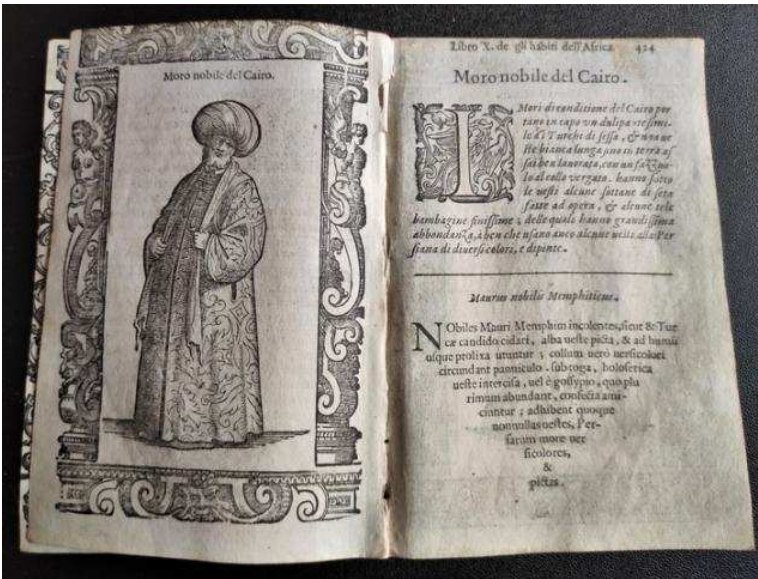 Moro nobile del Cairo.
Libro X. de gli habiti dell'Africa. 424
Moro nobile del Cairo.
I Mori di conditione del Cairo por
tano in capo vn dulipante simi-
le a i Turchi di sessa, & una ue
ste bianca lunga fino in terra as
sai ben lauorata, con un fazzuo
lo al collo vergato. hanno sotto
le uesti alcune sottane di seta
fatte ad opera, & alcune tele
bambagine finissime; delle quali hanno grandissima
abbondanza, à ben che usano anco alcune uesti alla Per
siana di diuersi colori, e dipinte.
Maurus nobilis Memphiticus.
NObiles Mauri Memphim incolentes, sicut & Tur
cæ candido cidari, alba ueste picta, & ad humũ
usque prolixa utuntur; collum uero uersicolori
circundant panniculo. sub toga, holoserica
ueste intercisa, uel è gossypio, quo plu
rimum abundant, confecta ami-
ciuntur; adhibent quoque
nonnullas uestes, Per-
sarum more uer
sicolores,
&
pictas.